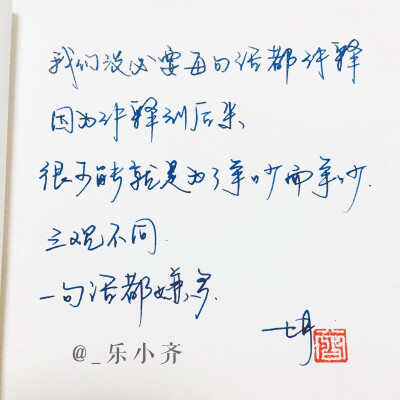 我们没必要每句话都计释
因为计释到后来
很可能就是为了争吵而争吵.
三观不同.
一句话都嫌多.
@_乐小齐